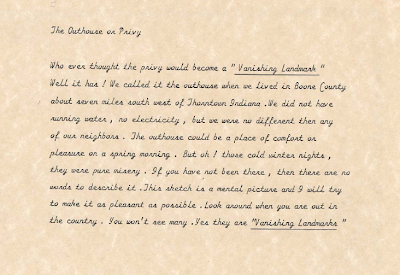 The Outhouse or Privy
Who ever thought the privy would become a " Vanishing Landmark "
Well it has ! We called it the outhouse when we lived in Boone County
about seven miles south west of Thorntown Indiana .We did not have
running water , no electricity , but we were no different then any
of our neighbors . The outhouse could be a place of comfort or
pleasure on a spring morning . But oh ! those cold winter nights ,
they were pure misery . If you have not been there , then there are no
words to describe it .This sketch is a mental picture and I will try
to make it as pleasant as possible .Look around when you are out in
the country . You won't see many .Yes they are "Vanishing Landmarks "